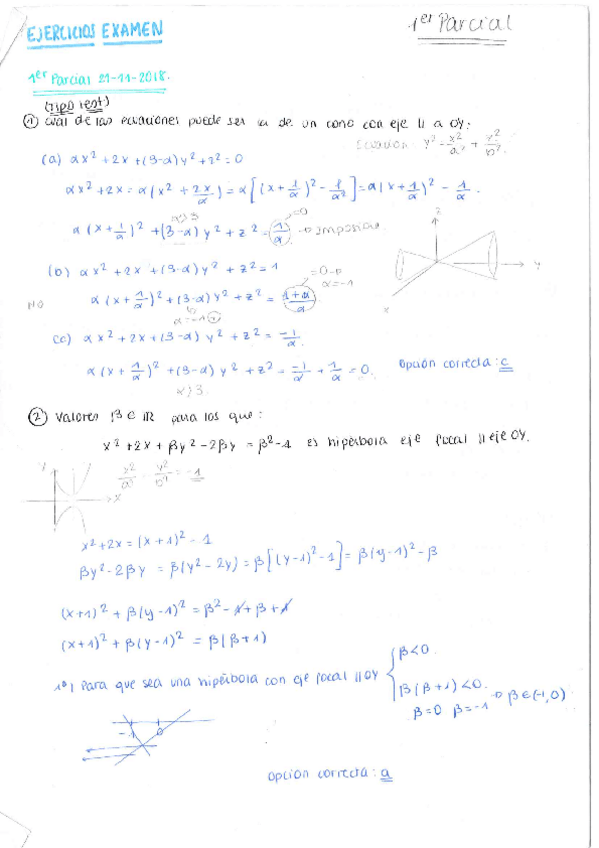 EJERCICIOS EXAMEN
1er Parcial
1er Parcial 21-11-2018.
(tipo test)
① Cuál de las ecuaciones puede ser la de un cono con eje || a OY:
Ecuación: y² = x²/a² + z²/b².
(a) αx² + 2x + (3-α)y² + z² = 0
αx² + 2x = α(x² + 2x/α) = α[(x + 1/α)² - 1/α²] = α(x + 1/α)² - 1/α.
α>3 =0
α(x + 1/α)² + (3-α)y² + z² = 1/α → Imposible
z
y
x
(b) αx² + 2x + (3-α)y² + z² = 1
=0 → α=-1
NO
α(x + 1/α)² + (3-α)y² + z² = (1+α)/α
α=-1
(c) αx² + 2x + (3-α)y² + z² = -1/α.
α(x + 1/α)² + (3-α)y² + z² = -1/α + 1/α = 0.
α>3
Opción correcta: c
② Valores β ∈ ℝ para los que:
x² + 2x + βy² - 2βy = β² - 1 es hipérbola eje focal || eje OY.
y
x
x²/a² - y²/b² = -1
x² + 2x = (x+1)² - 1
βy² - 2βy = β(y² - 2y) = β[(y-1)² - 1] = β(y-1)² - β
(x+1)² + β(y-1)² = β² - 1 + β + 1
(x+1)² + β(y-1)² = β(β+1)
1º) Para que sea una hipérbola con eje focal || OY
β<0.
β(β+1)<0.
β=0 β=-1 → β∈(-1,0)
-1 0
Opción correcta: a